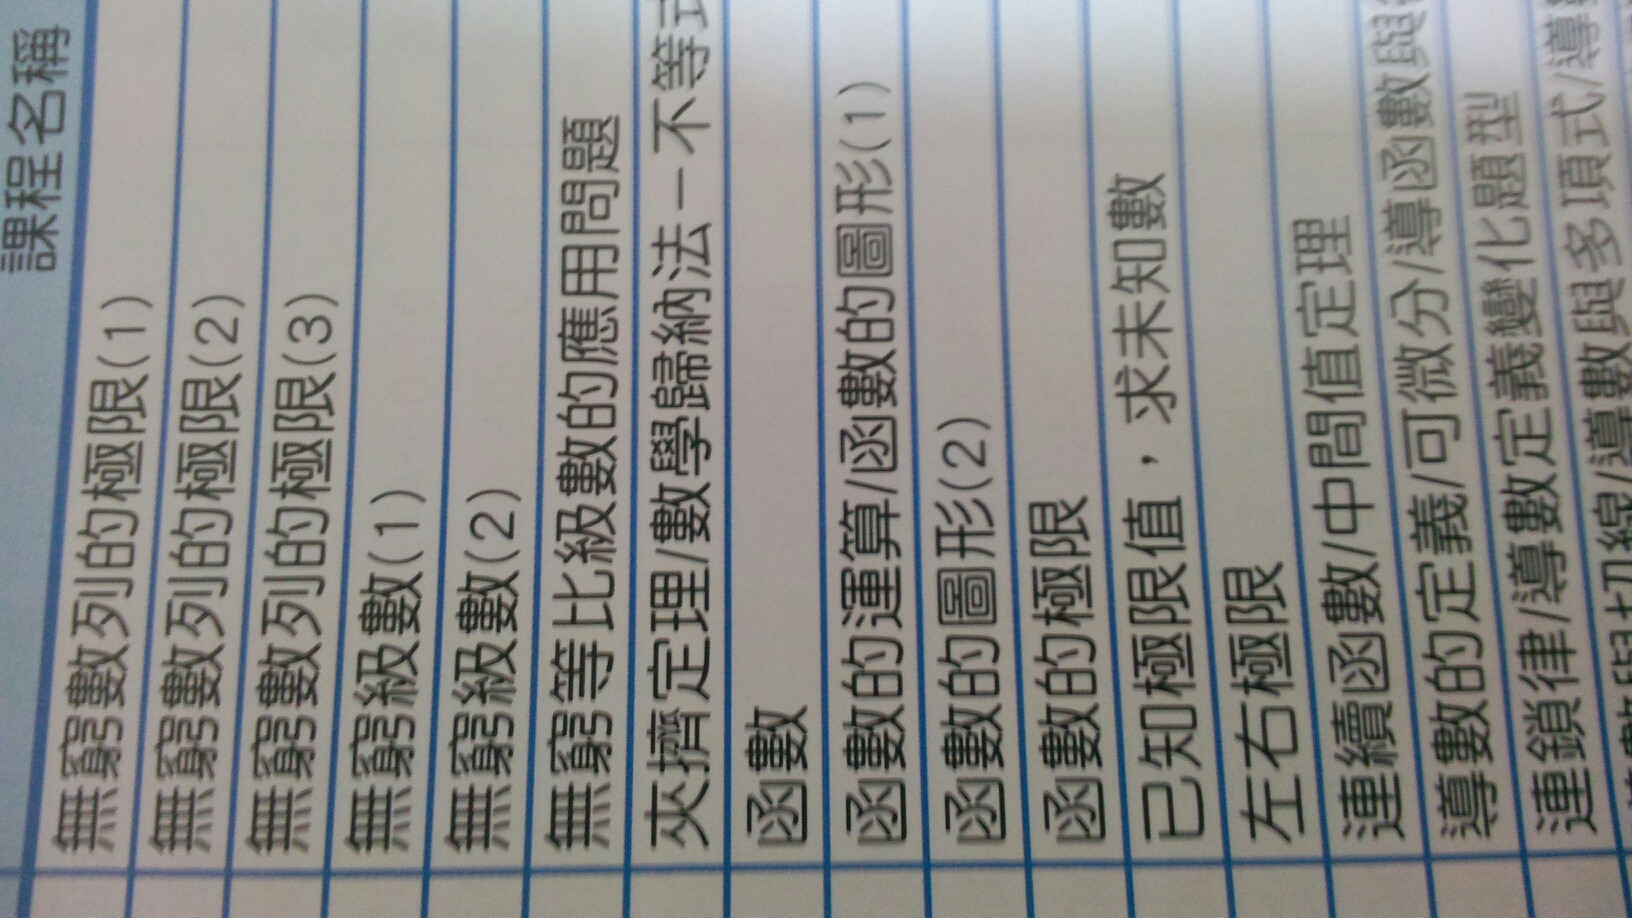 課程名稱
無窮數列的極限(1)
無窮數列的極限(2)
無窮數列的極限(3)
無窮級數(1)
無窮級數(2)
無窮等比級數的應用問題
夾擠定理/數學歸納法－不等式
函數
函數的運算/函數的圖形(1)
函數的圖形(2)
函數的極限
已知極限值，求未知數
左右極限
連續函數/中間值定理
導數的定義/可微分/導函數與
導數定義變化題型
連鎖律/導數與多項式/導
導數與切線/